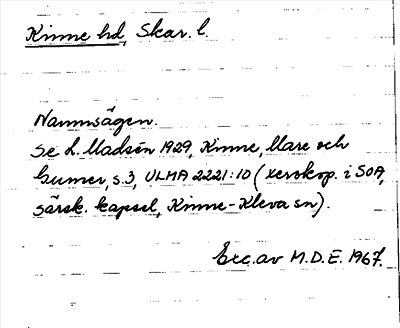 Kinne hd, Skar. l.
Namnsägen.
Se L. Madsén 1929, Kinne, Mare och
Gumer, s.3, ULMA 2221:10 (xerokop. i SOA,
särsk. kapsel, Kinne-Kleva sn).
Exc. av M.D.E. 1967.